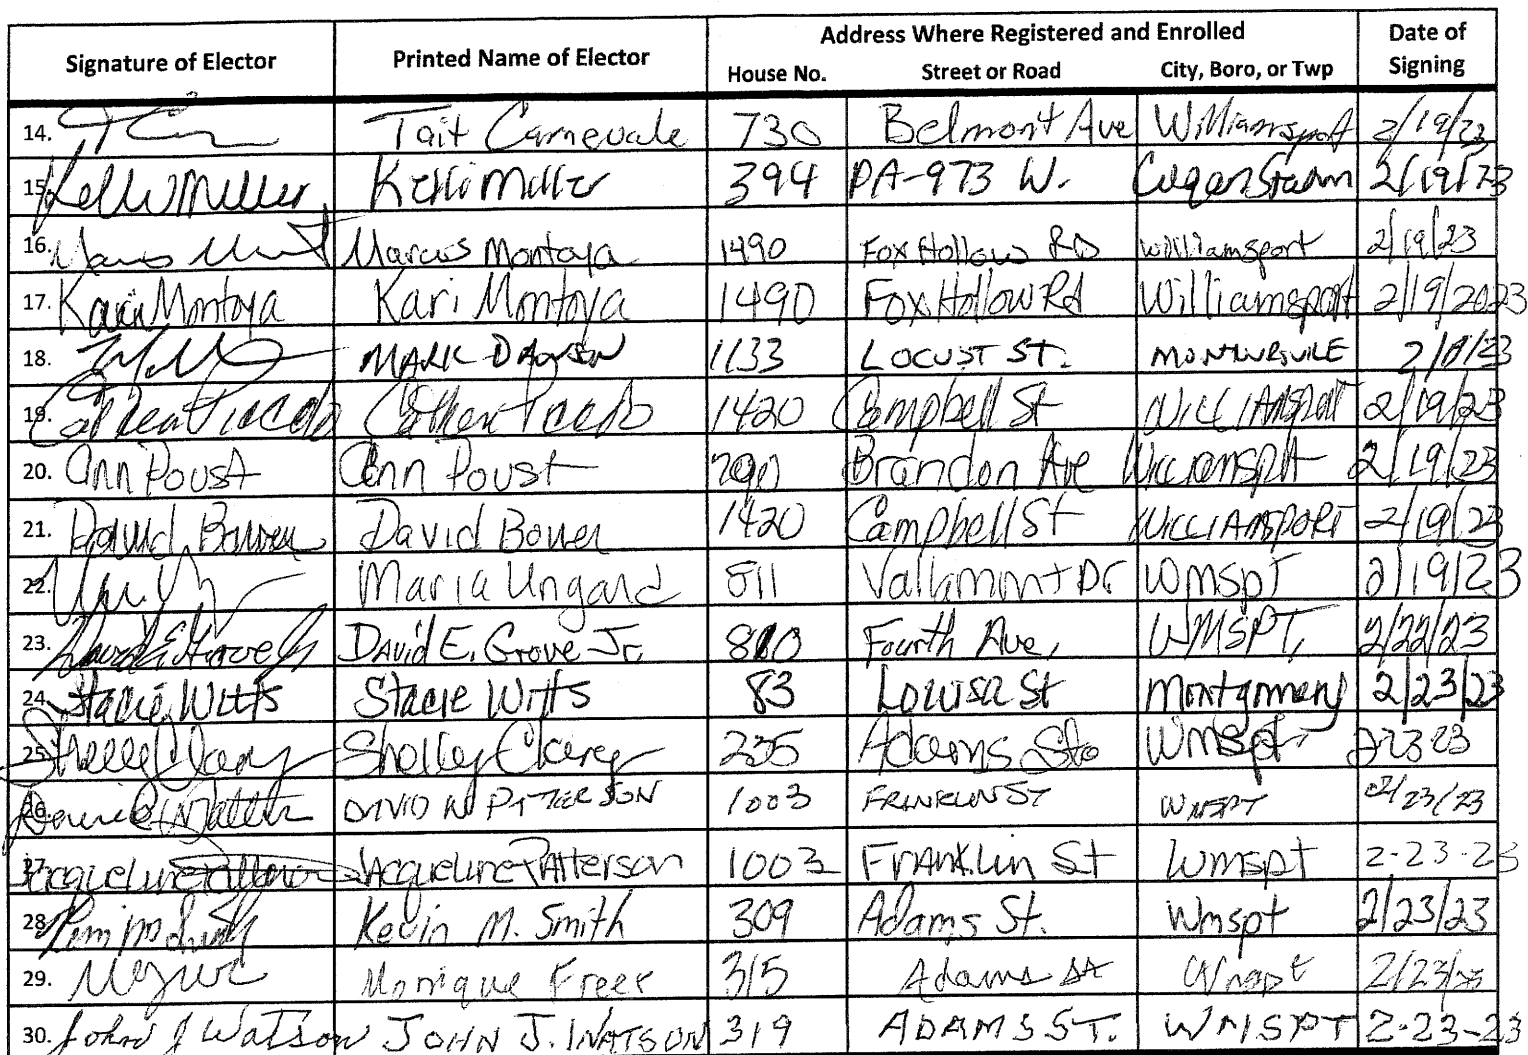 Signature of Elector Printed Name of Elector Address Where Registered and Enrolled Date of Signing
House No. Street or Road City, Boro, or Twp
14. Tait Carnevale 730 Belmont Ave Williamsport 2/19/23
15. Kelli Miller Kelli Miller 394 PA-973 W. Cogan Station 2/19/23
16. Marcus Montoya 1490 Fox Hollow RD Williamsport 2/19/23
17. Kari Montoya Kari Montoya 1490 Fox Hollow Rd Williamsport 2/19/2023
18. MARK 1133 LOCUST ST. MONTOURSVILLE
19. 1420 Campbell St WILLIAMSPORT 2/19/23
20. Ann Poust Ann Poust Brandon Ave Williamspt 2/19/23
21. David Bower David Bower 1420 Campbell St WILLIAMSPORT 2/19/23
22. Maria Ungard 811 Vallamont Dr Wmspt 2/19/23
23. David E. Grove Jr David E. Grove Jr. Fourth Ave, WMSPT, 2/22/23
24. Stacie Witts Stacie Witts 83 Louisa St Montgomery 2/23/23
25. Shelley 235 Adams St Wmspt 22323
26. DAVID W PATTERSON 1003 FRANKLIN ST WMSPT 02/23/23
27. Jacqueline Patterson Jacqueline Patterson 1003 Franklin St Wmspt 2-23-23
28. Kevin M. Smith 309 Adams St. Wmspt 2/23/23
29. Monique Freer 315 Adams St Wmspt 2/23/23
30. John J Watson JOHN J. WATSON 319 ADAMS ST. WMSPT 2-23-23